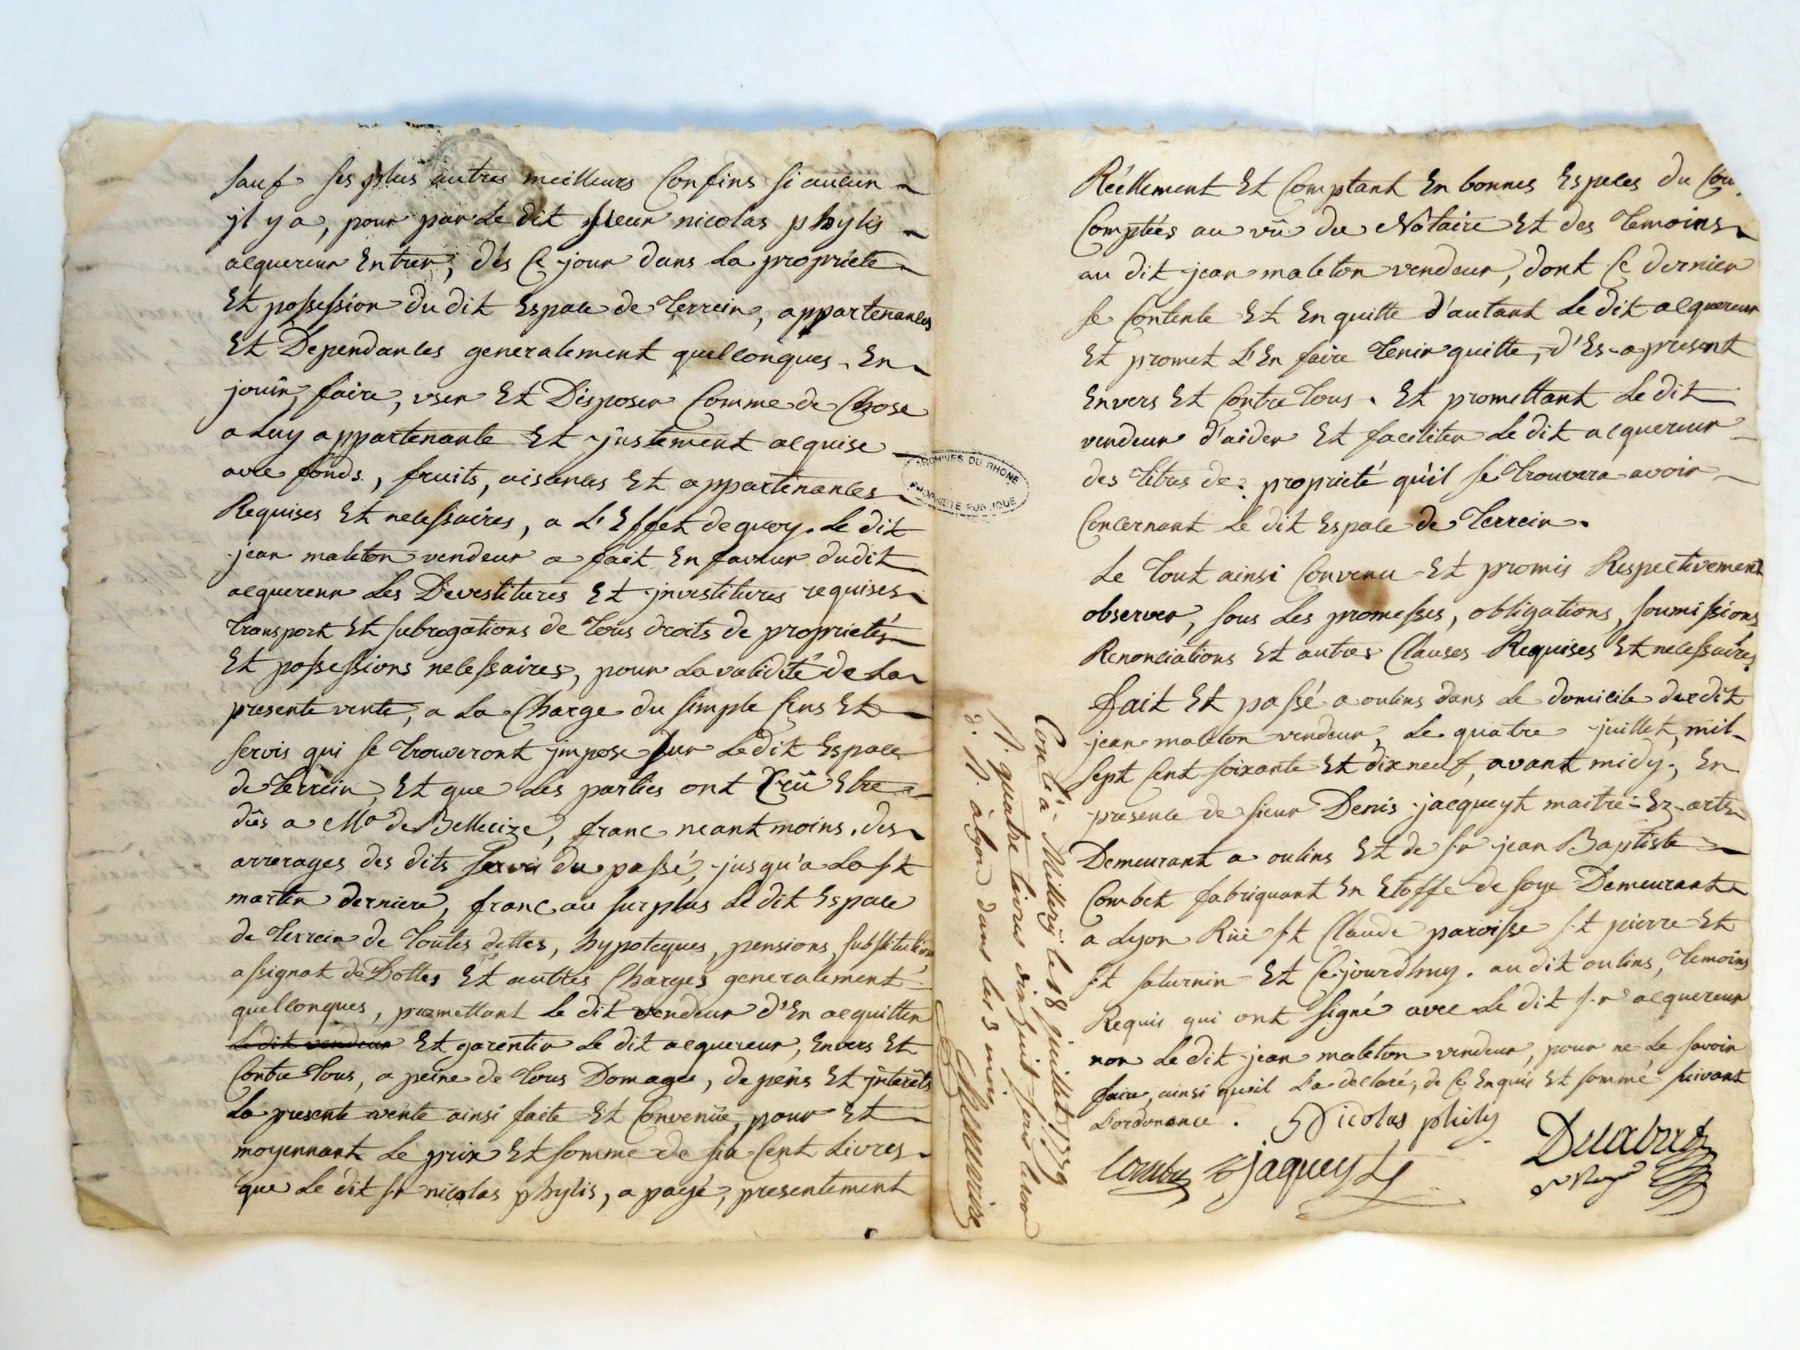 sauf ses plus autres meilleurs Confins si aucun
jl y a, pour par Le dit sieur nicolas phylis
acquereur Entrer, dès Ce jour dans La proprieté
Et possession du dit Espace de Terrein, appartenances
Et Dependances generalement quelconques. En
jouir, faire, user Et Disposer Comme de Chose
a Luy appartenante Et justement acquise
avec fonds, fruits, aisances Et appartenances
Requises Et necessaires, a L'Effet de quoy. Le dit
jean maleton vendeur a fait En faveur dudit
acquereur Les Devestitures Et jnvestitures requises
Transport Et subrogations de Tous droits de proprietés
Et possessions necessaires, pour La validité de La
presente vente, a La Charge du simple Cens Et
servis qui se Trouveront jmposé sur Le dit Espace
de Terrein, Et que Les parties ont Creü Etre
dûs a Mr de Bellecize, franc neantmoins. des
arrerages des dits servis du passé, jusqu'a La st
martin derniere, franc au surplus Le dit Espace
de Terrein de Toutes dettes, hypoteques, pensions, substitution
assignat de Dottes Et autres Charges generalement
quelconques, promettant Le dit vendeur d'En acquitter
Le dit vendeur Et garentir Le dit acquereur, Envers Et
Contre Tous, a peine de Tous Domages, depens Et jnterêts
La presente vente ainsi faite Et Convenüe, pour Et
moyennant Le prix Et somme de six Cent Livres
que Le dit sr nicolas phylis, a payé, presentement
ARCHIVES DU RHONE
PROPRIÉTÉ PUBLIQUE
Conlé à Millery le 18 juillet 1779
R. quatre livres dix huit sols
à Lyon dans les 3 mois
Réellement Et Comptant En bonnes Especes du Cou
Comptées au vû du Notaire Et des Temoins
au dit jean maleton vendeur, dont Ce dernier
se Contente Et En quitte d'autant Le dit acquereur
Et promet L'En faire Tenir quitte, d'Es-a present
Envers Et Contre Tous. Et promettant Le dit
vendeur d'aider Et faciliter Le dit acquereur
des Titres de propriété qu'il se Trouvera avoir
Concernant Le dit Espace de Terrein.
Le Tout ainsi Convenu Et promis Respectivement
observer, sous Les promesses, obligations, soumissions
Renonciations Et autres Clauses Requises Et necessaires
fait Et passé a oulins dans Le domicile du dit
jean maleton vendeur, Le quatre juillet, mil
sept Cent soixante Et dix neuf, avant midy, En
presence de sieur Denis jacqueyt maitre Ez-arts
Demeurant a oulins Et de sr jean Baptiste
Combet fabriquant En Etoffe de soye Demeurant
a Lyon Rüe st Claude paroisse st pierre Et
st saturnin Et Cejourdhuy. au dit oulins, Temoins
Requis qui ont signé avec Le dit sr acquereur
non Le dit jean maleton vendeur, pour ne Le savoir
faire, ainsi qu'il L'a declaré, de Ce Enquis Et sommé suivant
L'ordonance. Nicolas phily
Combet jaqueyt